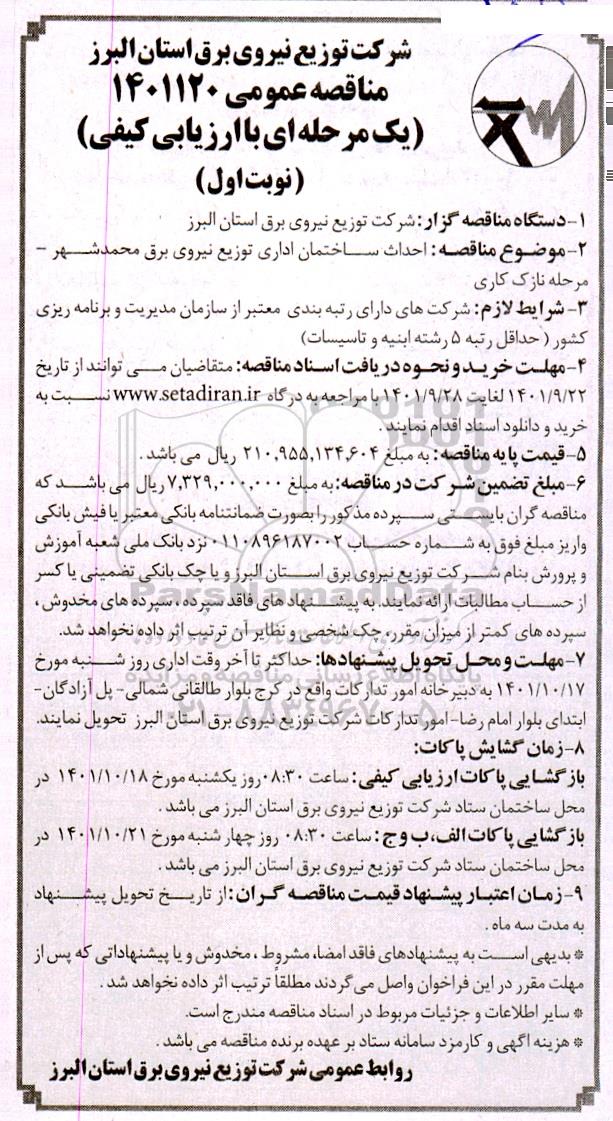 شرکت توزیع نیروی برق استان البرز
مناقصه عمومی ۱۴۰۱۱۲۰
(یک مرحله ای با ارزیابی کیفی)
(نوبت اول)
۱- دستگاه مناقصه گزار: شرکت توزیع نیروی برق استان البرز
۲- موضوع مناقصه: احداث ساختمان اداری توزیع نیروی برق محمدشهر –
مرحله نازک کاری
۳- شرایط لازم: شرکت های دارای رتبه بندی معتبر از سازمان مدیریت و برنامه ریزی
کشور (حداقل رتبه ۵ رشته ابنیه و تاسیسات)
۴- مهلت خرید و نحوه دریافت اسناد مناقصه: متقاضیان می توانند از تاریخ
۱۴۰۱/۹/۲۲ لغایت ۱۴۰۱/۹/۲۸ با مراجعه به درگاه www.setadiran.ir نسبت به
خرید و دانلود اسناد اقدام نمایند.
۵- قیمت پایه مناقصه: به مبلغ ۲۱۰,۹۵۵,۱۳۴,۶۰۴ ریال می باشد.
۶- مبلغ تضمین شرکت در مناقصه: به مبلغ ۷,۳۲۹,۰۰۰,۰۰۰ ریال می باشد که
مناقصه گران بایستی سپرده مذکور را بصورت ضمانتنامه بانکی معتبر یا فیش بانکی
واریز مبلغ فوق به شماره حساب ۰۱۱۰۸۹۶۱۸۷۰۰۲ نزد بانک ملی شعبه آموزش
و پرورش بنام شرکت توزیع نیروی برق استان البرز و یا چک بانکی تضمینی یا کسر
از حساب مطالبات ارائه نمایند. به پیشنهاد های فاقد سپرده، سپرده های مخدوش،
سپرده های کمتر از میزان مقرر، چک شخصی و نظایر آن ترتیب اثر داده نخواهد شد.
۷- مهلت و محل تحویل پیشنهادها: حداکثر تا آخر وقت اداری روز شنبه مورخ
۱۴۰۱/۱۰/۱۷ به دبیرخانه امور تدارکات واقع در کرج بلوار طالقانی شمالی- پل آزادگان-
ابتدای بلوار امام رضا- امور تدارکات شرکت توزیع نیروی برق استان البرز تحویل نمایند.
۸- زمان گشایش پاکات:
بازگشایی پاکات ارزیابی کیفی: ساعت ۰۸:۳۰ روز یکشنبه مورخ ۱۴۰۱/۱۰/۱۸ در
محل ساختمان ستاد شرکت توزیع نیروی برق استان البرز می باشد.
بازگشایی پاکات الف، ب و ج: ساعت ۰۸:۳۰ روز چهار شنبه مورخ ۱۴۰۱/۱۰/۲۱ در
محل ساختمان ستاد شرکت توزیع نیروی برق استان البرز می باشد.
۹- زمان اعتبار پیشنهاد قیمت مناقصه گران: از تاریخ تحویل پیشنهاد
به مدت سه ماه.
* بدیهی است به پیشنهادهای فاقد امضا، مشروط، مخدوش و یا پیشنهاداتی که پس از
مهلت مقرر در این فراخوان واصل می گردند مطلقاً ترتیب اثر داده نخواهد شد.
* سایر اطلاعات و جزئیات مربوط در اسناد مناقصه مندرج است.
* هزینه اگهی و کارمزد سامانه ستاد بر عهده برنده مناقصه می باشد.
روابط عمومی شرکت توزیع نیروی برق استان البرز